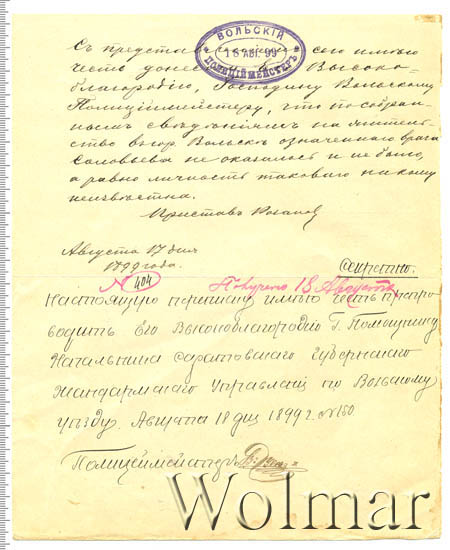 ВОЛЬСКІЙ
18 АВГ. 99
ПОЛИЦІЙМЕЙСТЕРЪ
Съ сею имѣю
честь Высоко-
благородію, Господину Вольскому
Полиціймейстеру, что по собран-
нымъ свѣдѣніямъ на житель-
ство въ гор. Вольскѣ означеннаго врача
Соловьева не оказалось и не было,
а равно личность таковаго никому
неизвѣстна.
Приставъ
Августа 17 дня
1899 года.
№ 404
Секретно.
Получено 18 Августа
Настоящую переписку имѣю честь препро
водить Его Высокоблагородію Г. Помощнику
Начальника Саратовскаго Губернскаго
Жандармскаго Управленія по Вольскому
уѣзду. Августа 18 дня 1899 г. № 150
Полиціймейстеръ
Wolmar